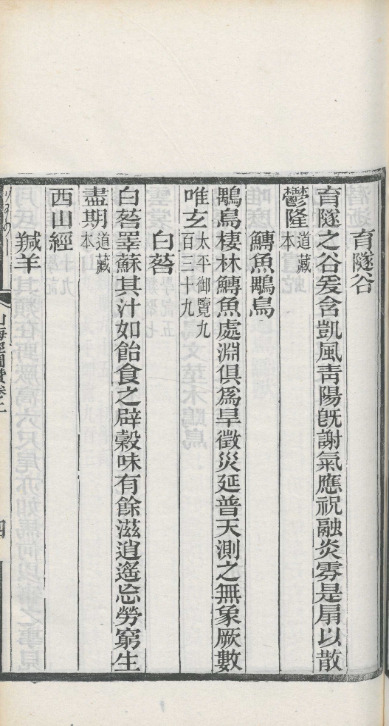 育隧谷
育隧之谷爰含凱風靑陽旣謝氣應祝融炎雰是扇以散
鬱隆道藏本
鱄魚鴅鳥
鴅鳥棲林鱄魚處淵俱爲旱徵災延普天測之無象厥數
唯玄太平御覽九百三十九
白䓘
白䓘睪蘇其汁如飴食之辟穀味有餘滋逍遙忘勞窮生
盡期道藏本
西山經
羬羊
山海經圖贊卷上
四